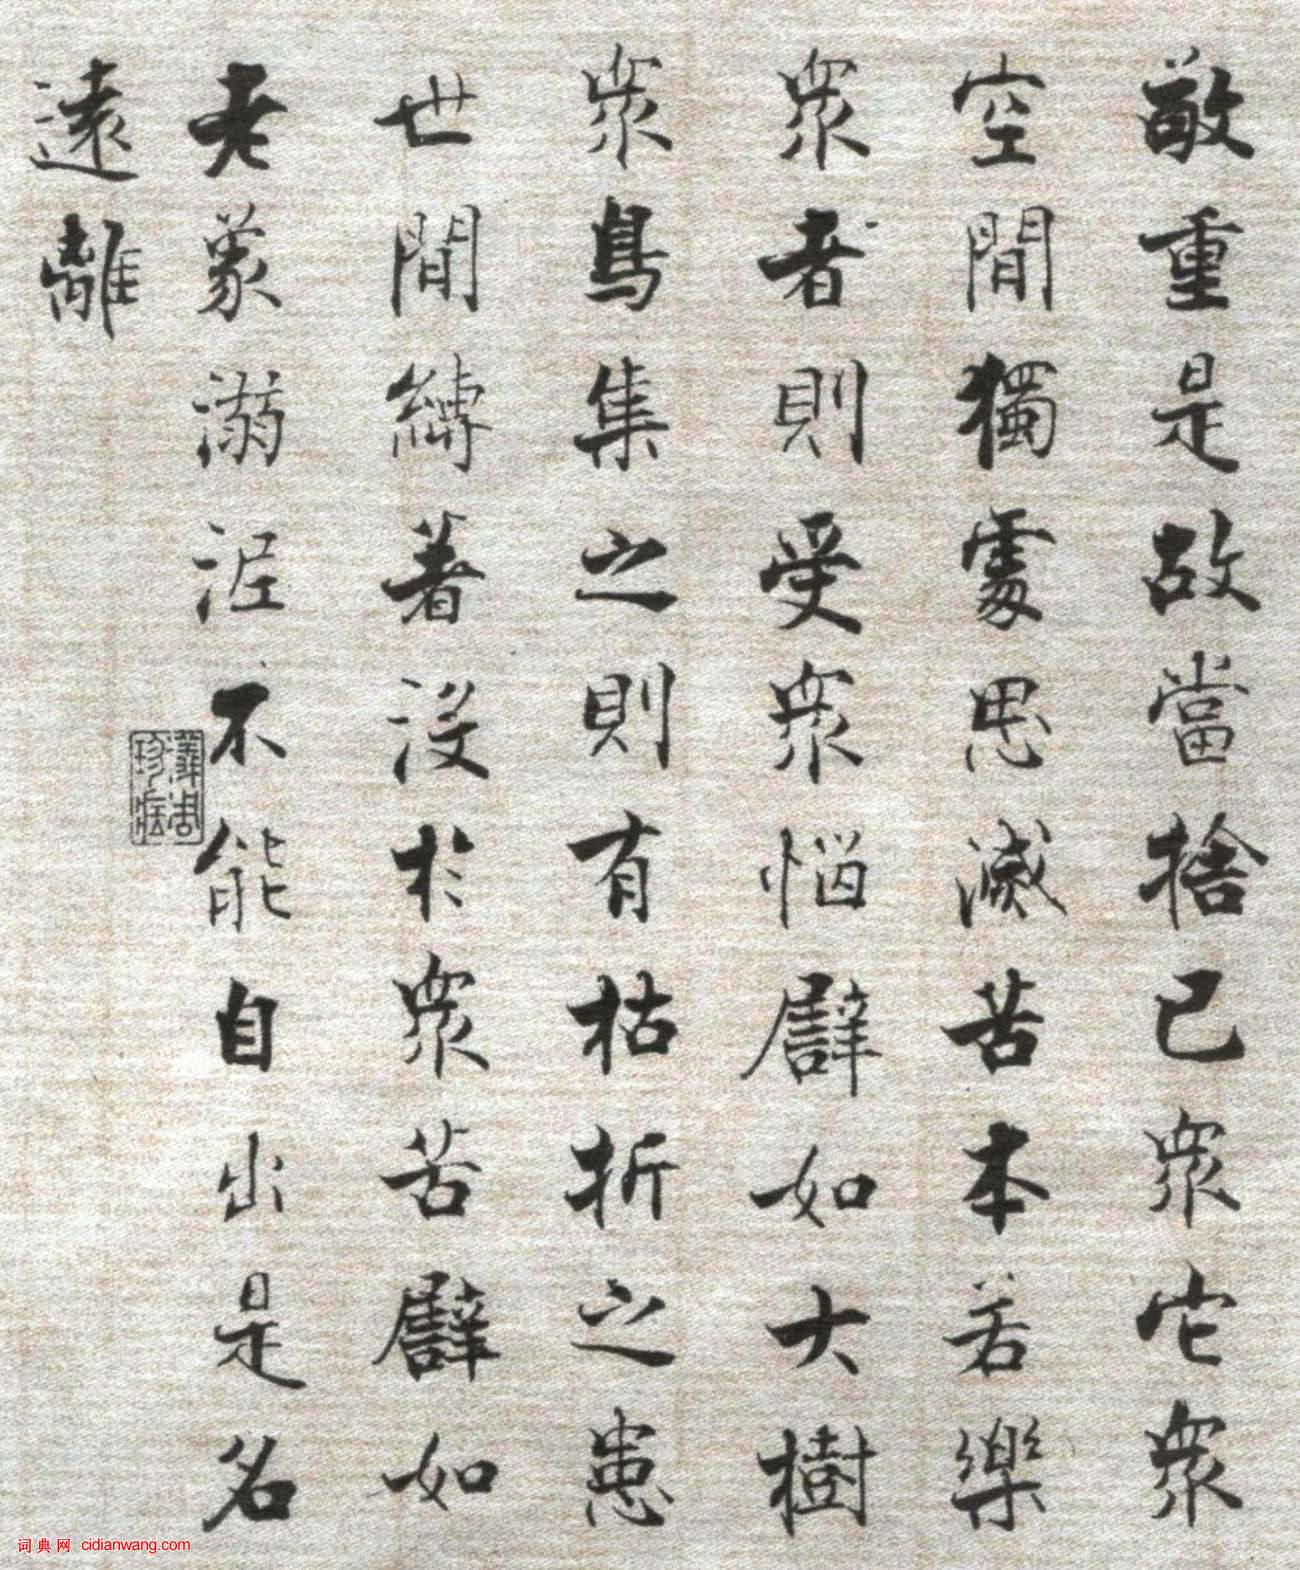 敬重是故當捨已眾它眾
空間獨處思滅苦本若樂
眾者則受眾惱譬如大樹
眾鳥集之則有枯折之患
世間縛著沒於眾苦譬如
老象溺泥不能自出是名
遠離
词典网 cidianwang.com